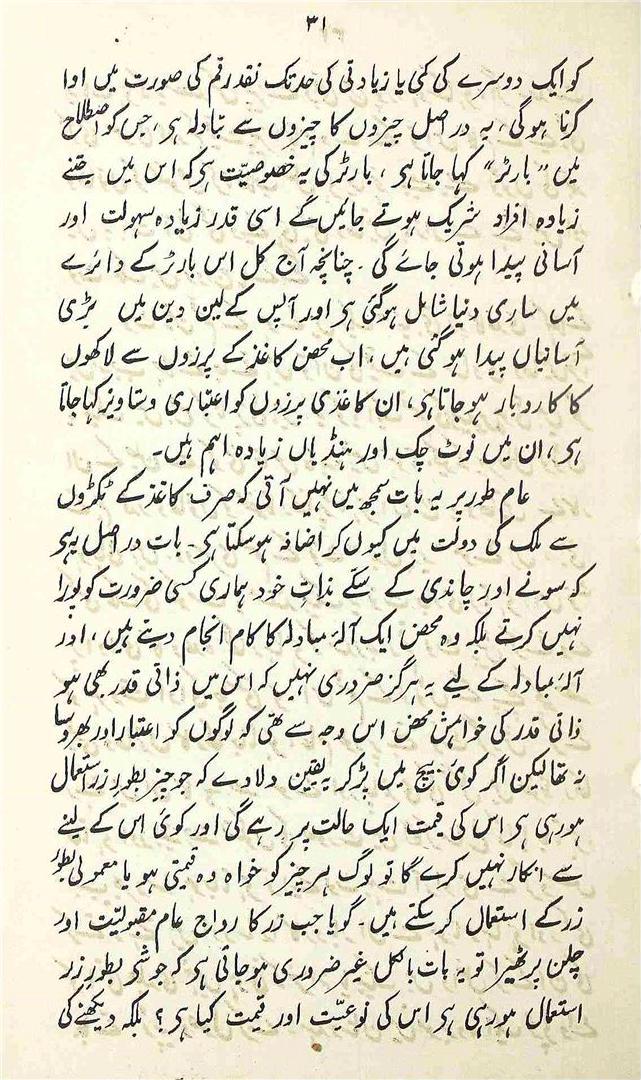 ۳۱
کو ایک دوسرے کی کمی یا زیادتی کی حد تک نقد رقم کی صورت میں ادا
کرنا ہوگی، یہ در اصل چیزوں کا چیزوں سے تبادلہ ہی، جس کو اصطلاح
میں "بارٹر" کہا جاتا ہی، بارٹر کی یہ خصوصیّت ہی کہ اس میں جتنے
زیادہ افراد شریک ہوتے جائیں گے اسی قدر زیادہ سہولت اور
آسانی پیدا ہوتی جائے گی۔ چنانچہ آج کل اس بارٹر کے دائرے
میں ساری دنیا شامل ہوگئی ہی اور آپس کے لین دین میں بڑی
آسانیاں پیدا ہوگئی ہیں، اب محض کاغذ کے پرزوں سے لاکھوں
کا کاروبار ہوجاتا ہی، ان کاغذی پرزوں کو اعتباری دستاویز کہا جاتا
ہی، ان میں نوٹ چک اور ہنڈیاں زیادہ اہم ہیں۔
عام طور پر یہ بات سمجھ میں نہیں آتی کہ صرف کاغذ کے ٹکڑوں
سے ملک کی دولت میں کیوں کر اضافہ ہوسکتا ہی۔ بات در اصل یہ ہی
کہ سونے اور چاندی کے سکّے بذاتِ خود ہماری کسی ضرورت کو پورا
نہیں کرتے بلکہ وہ محض ایک آلۂ مبادلہ کا کام انجام دیتے ہیں، اور
آلۂ مبادلہ کے لیے یہ ہرگز ضروری نہیں کہ اس میں ذاتی قدر بھی ہو
ذاتی قدر کی خواہش محض اس وجہ سے تھی کہ لوگوں کو اعتبار اور بھروسا
نہ تھا لیکن اگر کوئی بیچ میں پڑ کر یہ یقین دلادے کہ جو چیز بطورِ زر استعمال
ہورہی ہی اس کی قیمت ایک حالت پر رہے گی اور کوئی اس کے لینے
سے انکار نہیں کرے گا تو لوگ ہر چیز کو خواہ وہ قیمتی ہو یا معمولی بطورِ
زر کے استعمال کرسکتے ہیں۔ گویا جب زر کا رواج عام مقبولیّت اور
چلن پر ٹھیرا تو یہ بات بالکل غیر ضروری ہوجاتی ہی کہ جو شی بطورِ زر
استعمال ہورہی ہی اس کی نوعیّت اور قیمت کیا ہی؟ بلکہ دیکھنے کی